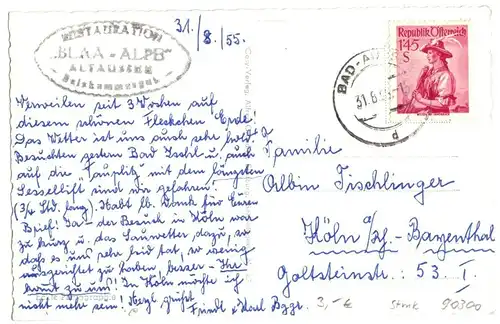 RESTAURATION
"BLAA-ALPE"
ALTAUSSEE
Salzkammergut
31./8./55.
Republik Österreich
1.45
S
BAD-AU
31.8.55
d
Verweilen seit 3 Wochen auf
diesem schönen Fleckchen Erde!
Das Wetter ist uns auch sehr hold!
Besuchten gestern Bad Ischl u. auch
auf die Tauplitz mit dem längsten
Sessellift sind wir gefahren!
(3/4 Std. lang). Habt lb. Dank für Euren
Brief. Ja - der Besuch in Köln war
zu kurz u. das Sauwetter dazu, so
daß es uns sehr leid tat, so wenig
ausgerichtet zu haben, besser - Ihr
kommt zu uns! In Köln möchte ich
nicht mehr sein! Herzl. grüßt
Friedl u. Karl
Familie
Albin Tischlinger
Köln a/Rh.-Bayenthal
Goltsteinstr. 53 I.
3,-€
90300